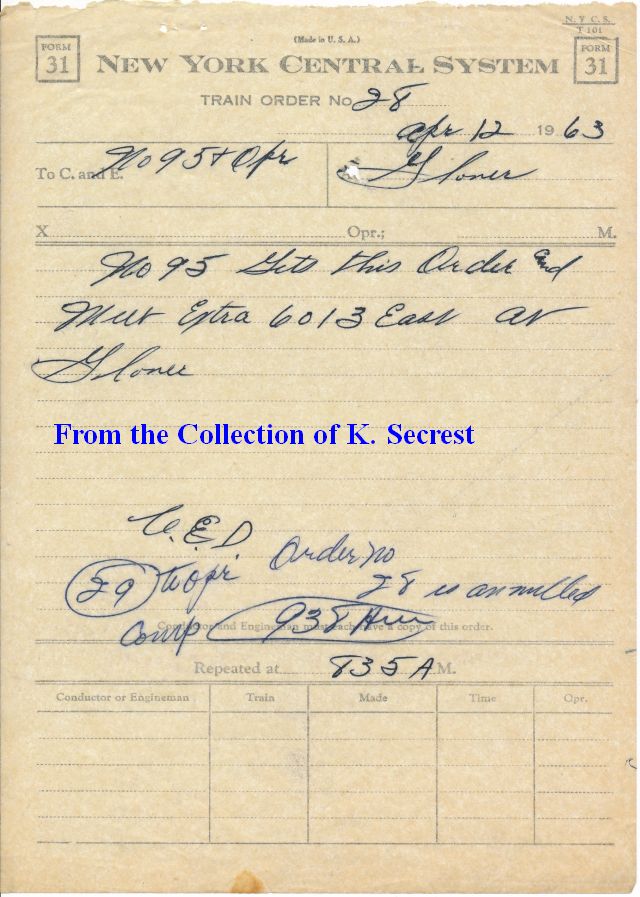 N. Y. C. S.
T 101
(Made in U. S. A.)
FORM
31
NEW YORK CENTRAL SYSTEM
FORM
31
TRAIN ORDER No 28
Apr 12 1963
To C. and E. No 95 + Opr
Gloner
X Opr.; M.
No 95 Gets this Order and
Meet Extra 6013 East at
Gloner
From the Collection of K. Secrest
C.E.D
Order no
29 to opr.
28 is annulled
Conductor and Engineman must each have a copy of this order.
Comp 938 Am
Repeated at 835 A M.
Conductor or Engineman Train Made Time Opr.